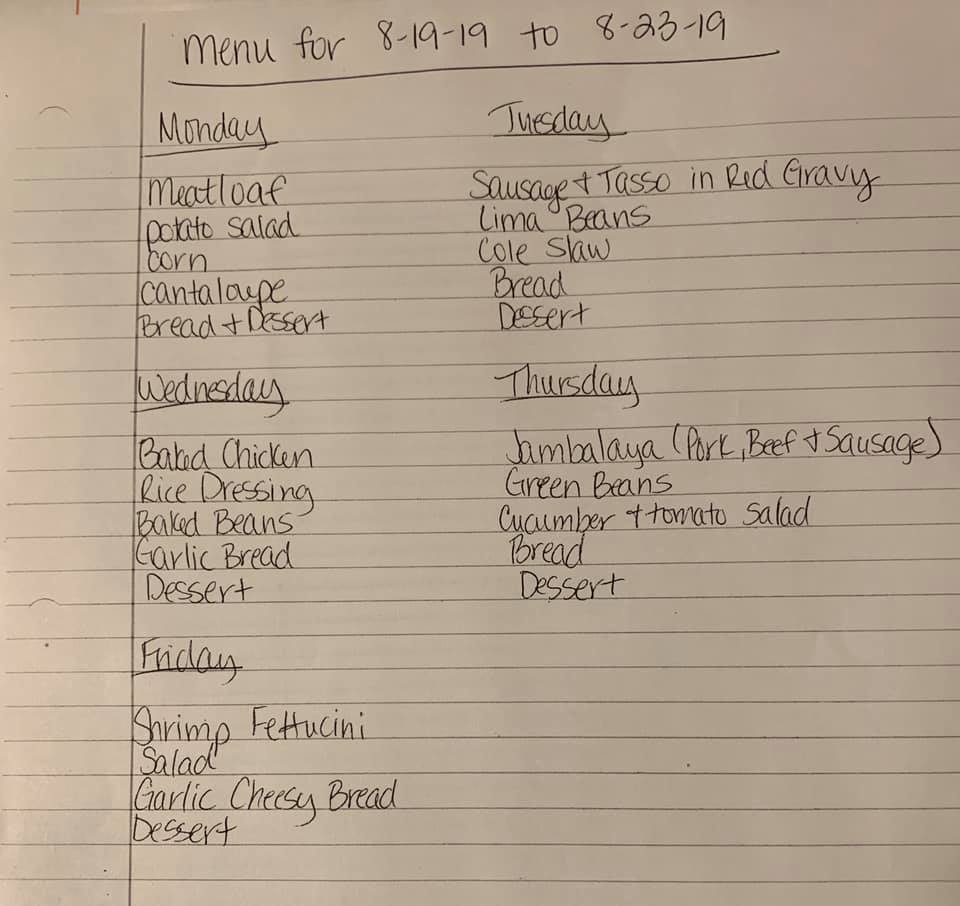 Menu for 8-19-19 to 8-23-19
Monday
Meatloaf
potato salad
corn
cantaloupe
Bread + Dessert
Tuesday
Sausage + Tasso in Red Gravy
Lima Beans
Cole Slaw
Bread
Dessert
Wednesday
Baked Chicken
Rice Dressing
Baked Beans
Garlic Bread
Dessert
Thursday
Jambalaya (Pork, Beef + Sausage)
Green Beans
Cucumber + tomato salad
Bread
Dessert
Friday
Shrimp Fettucini
Salad
Garlic Cheesy Bread
Dessert